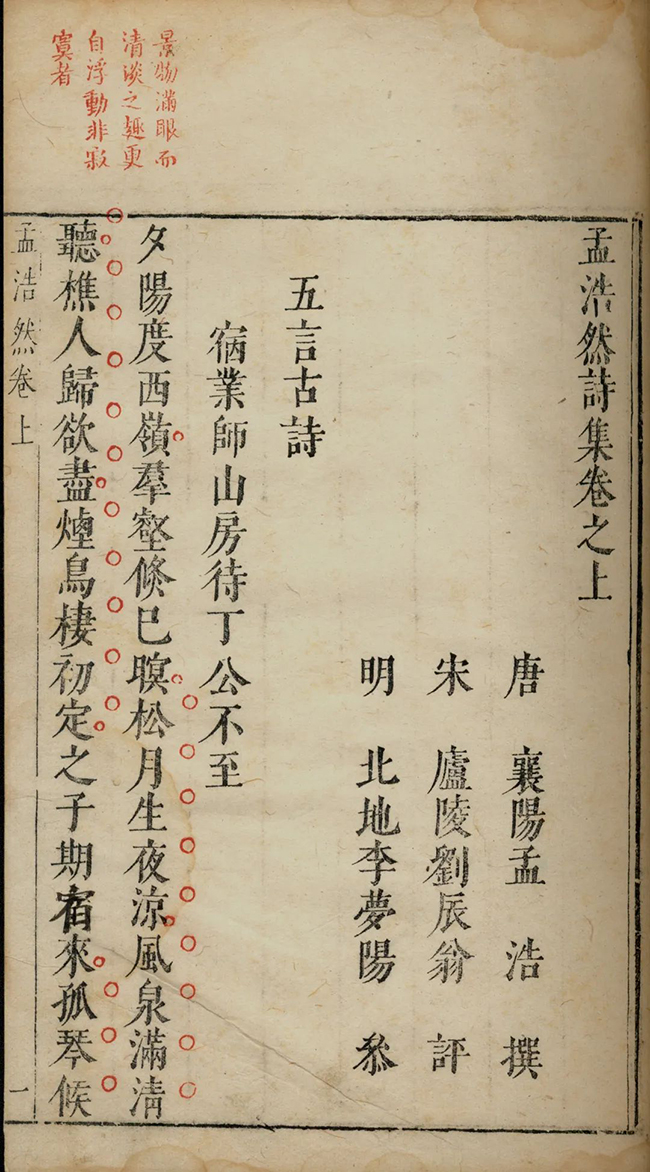 景物滿眼而
清淡之趣更
自浮動非寂
寞者
孟浩然詩集卷之上
唐 襄陽孟 浩 撰
宋 廬陵劉辰翁 評
明 北地李夢陽 叅
五言古詩
宿業師山房待丁公不至
夕陽度西嶺羣壑倐巳暝松月生夜涼風泉滿清
聽樵人歸欲盡煙鳥棲初定之子期宿來孤琴候
孟浩然卷上 一